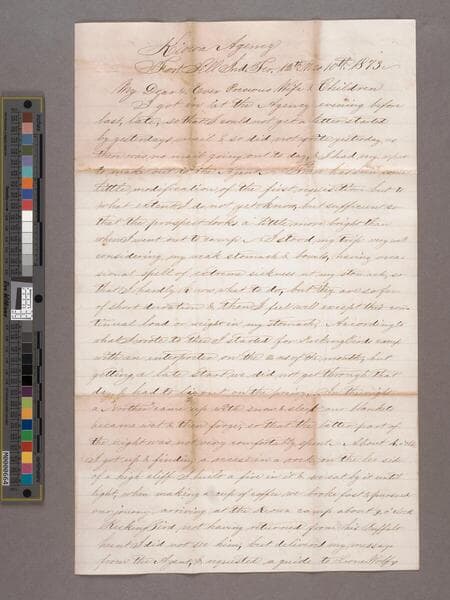 Kiowa Agency
Fort Sill Ind. Ter. 12th Mo 10th 1873
My Dear & Ever Precious Wife & Children
I got in at the Agency evening before
last, late, so that I could not get a letter started
by yesterdays mail & so did not write yesterday as
there was no mail going out to day & I had my report
to make out to the Agent. There has been some
little modification of the first requisition but to
what extent I do not yet know, but sufficient so
that the prospect looks a little more bright than
when I went out to camp. I stood my trip very well
considering my weak stomach & bowels, having occa-
sional spells of extreme sickness at my stomach, so
that I hardly know what to do, but they are so far
of short duration & then I feel well except this con-
tinual load or weight in my stomach. According to
what I wrote to thee I started for Kicking Bird's camp
with an interpreter on the 2nd of the month, but
getting a late start we did not get through that
day & had to lie out on the prairie. In the night
a "Norther" came up with snow & sleet our blankets
became wet & then froze, so that the latter part of
the night was not very comfortably spent. About
I got up & finding a recess in a rock on the lee side
of a high cliff I built a fire in it & we sat by it until
light, when making a cup of coffee we broke fast & pursued
our journey arriving at the Kiowa camp about 2 o'clock
Kicking Bird, not having returned from his Buffalo
hunt I did not see him, but delivered my message
from the Agent, & requested a guide to Lone Wolf's